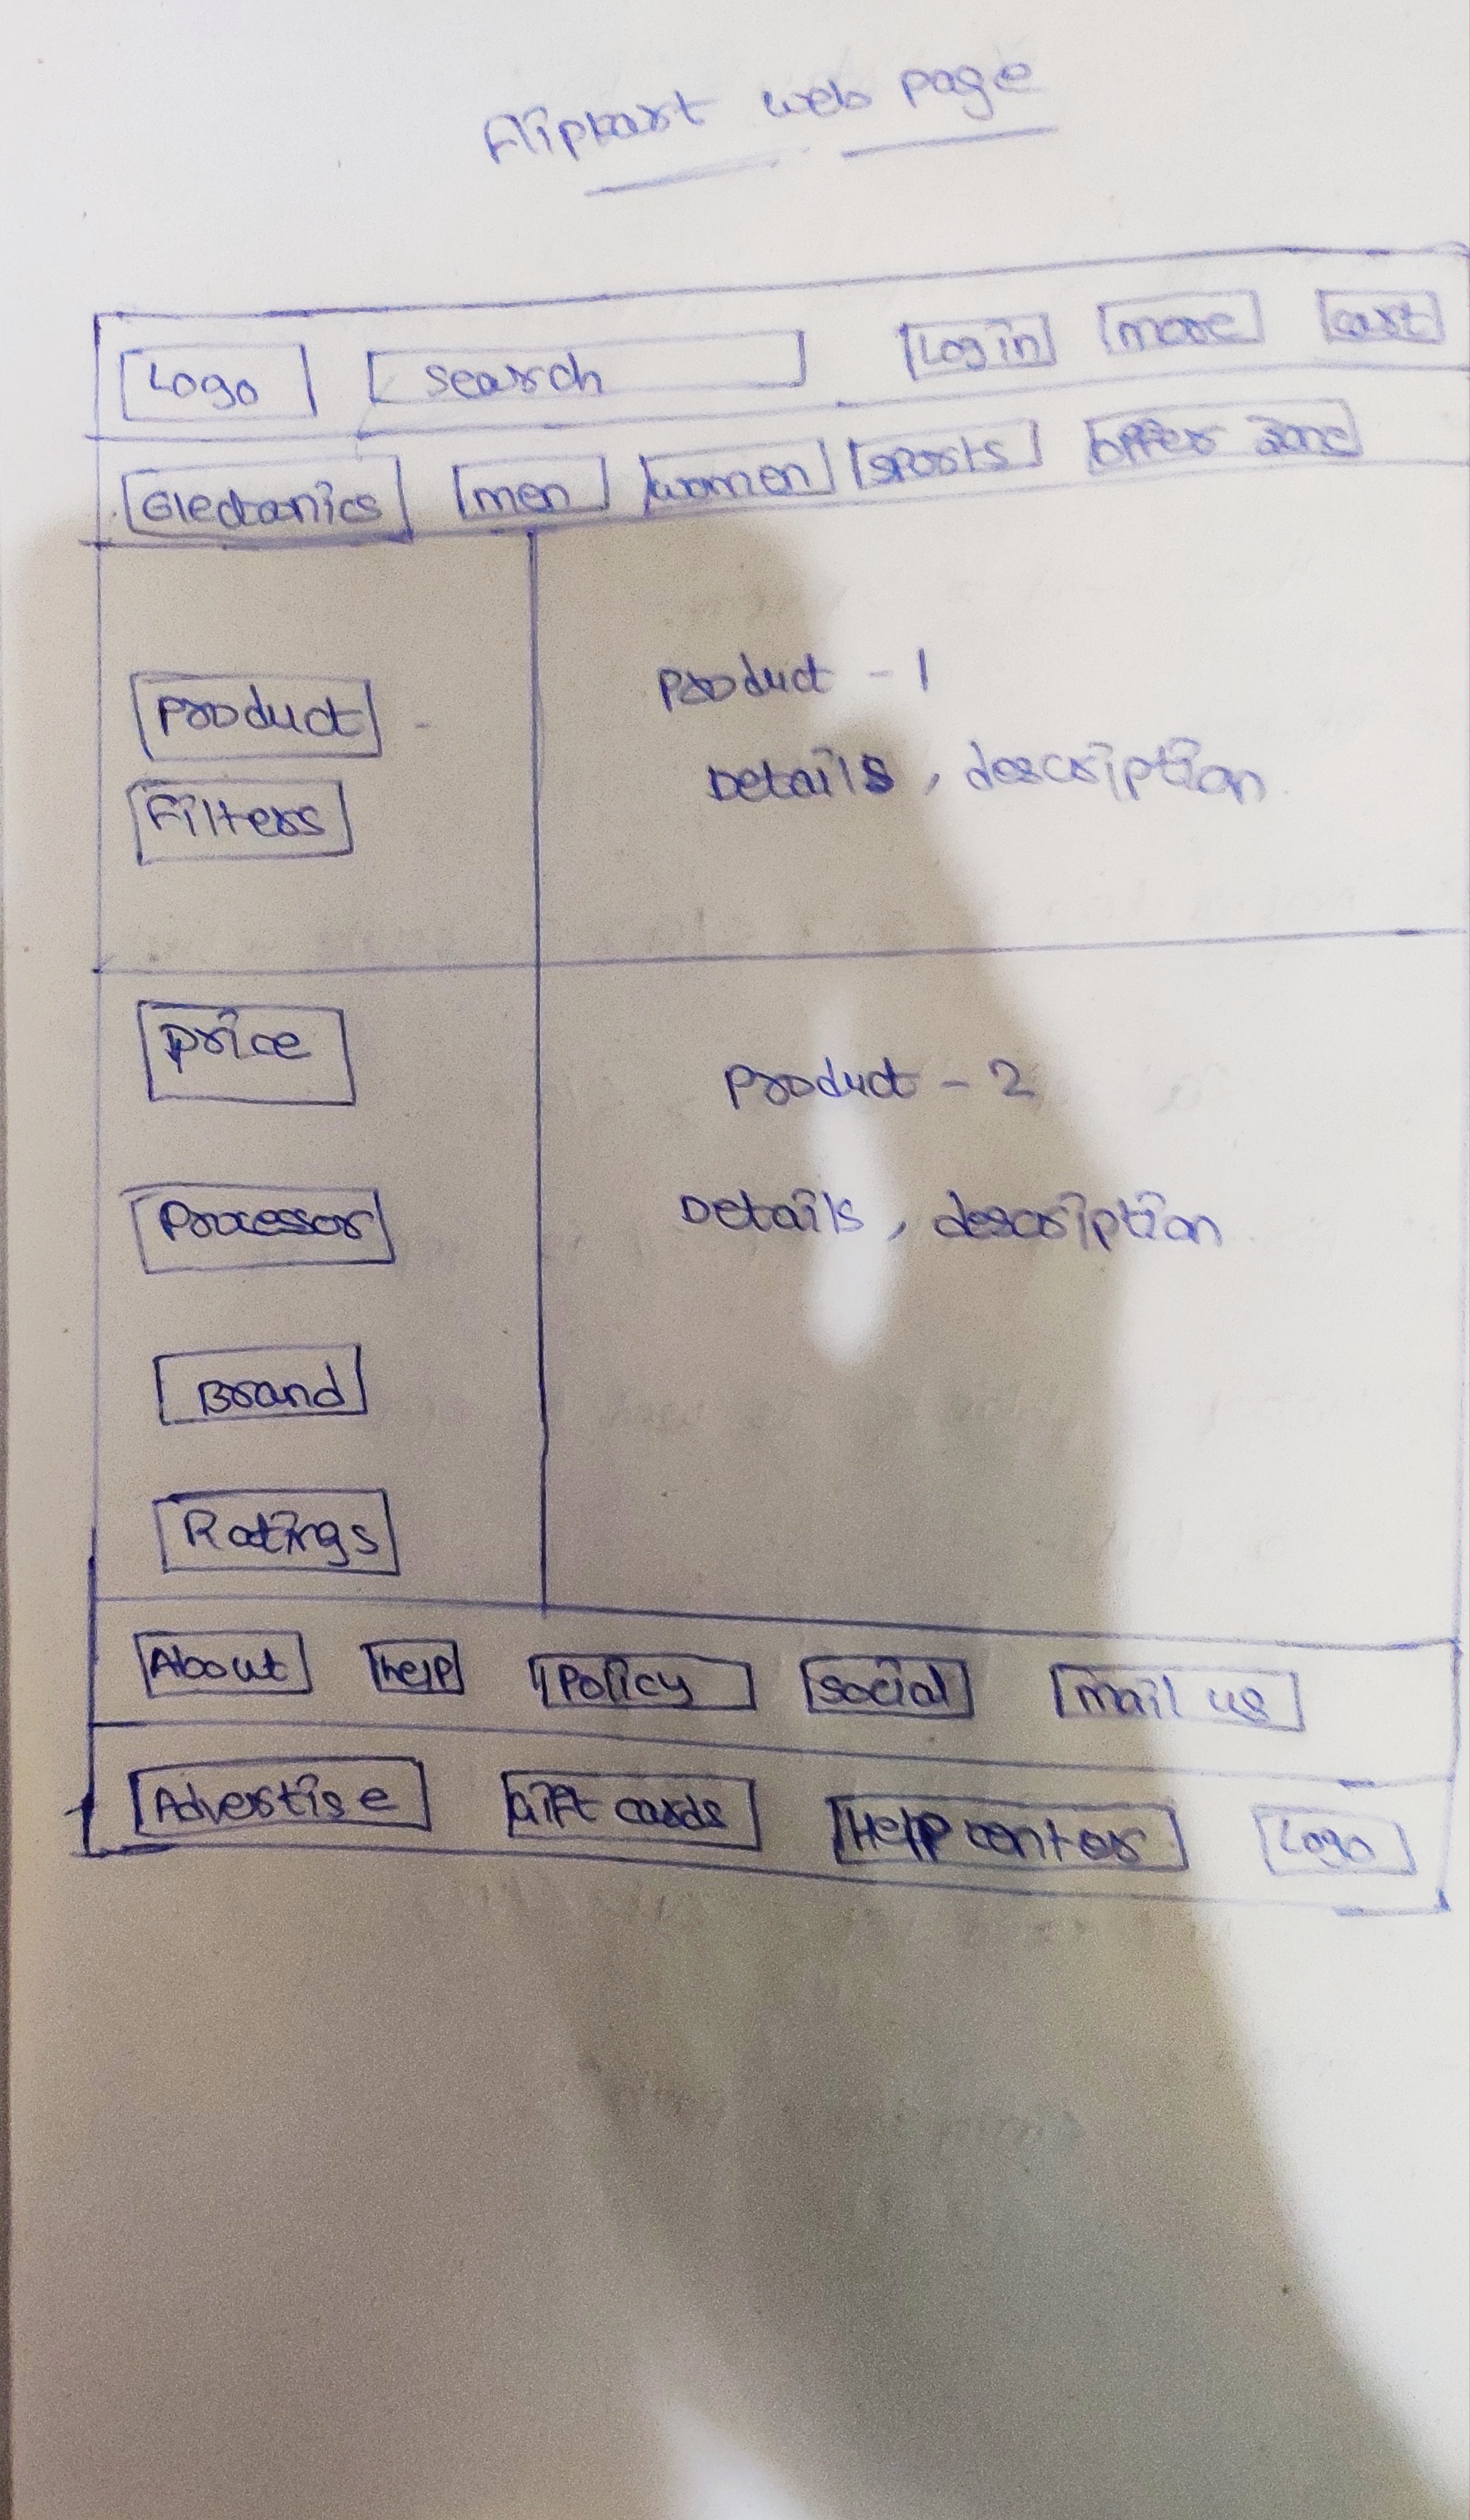 Flipkart web page
Logo search Login more cart
Electronics men women sports offer zone
Product
Filters
Product - 1
Details, description
price
Processor
Brand
Ratings
Product - 2
Details, description
About help Policy social mail us
Advertise Gift cards Help center Logo